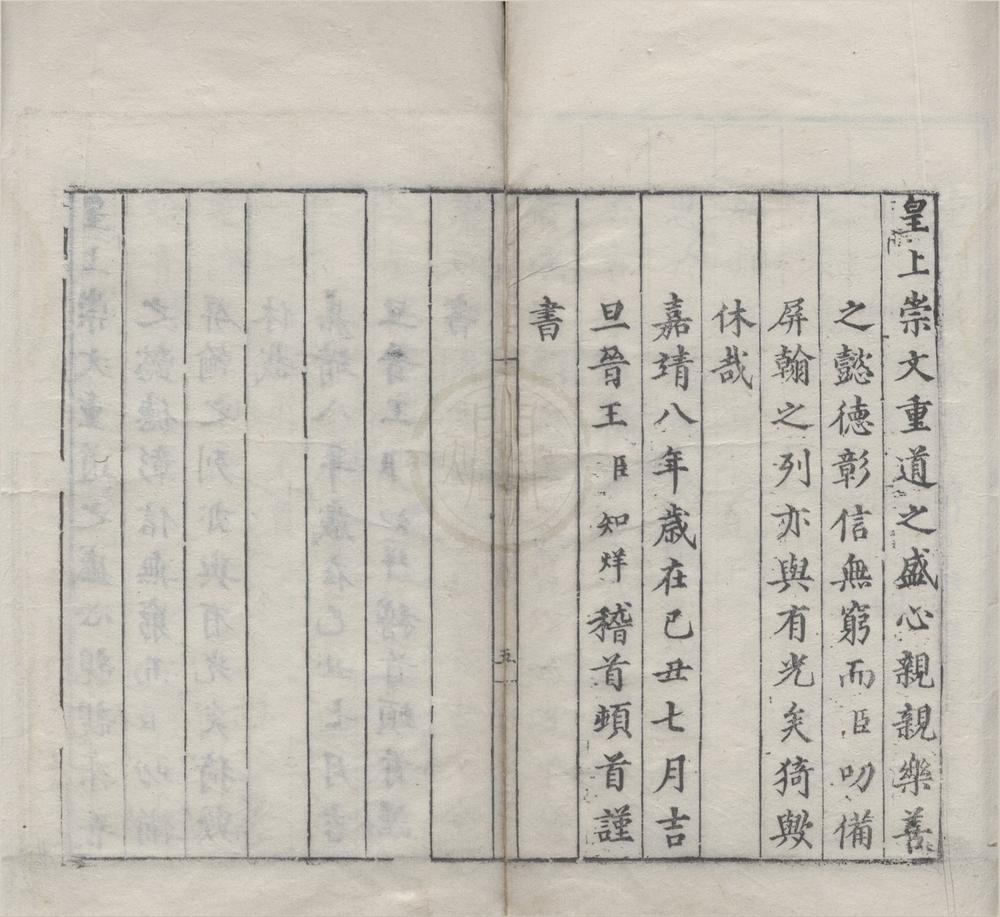 皇上崇文重道之盛心親親樂善
之懿德彰信無窮而臣叨備
屏翰之列亦與有光矣猗歟
休哉
嘉靖八年歲在己丑七月吉
旦晉王臣知烊稽首頓首謹
書
五